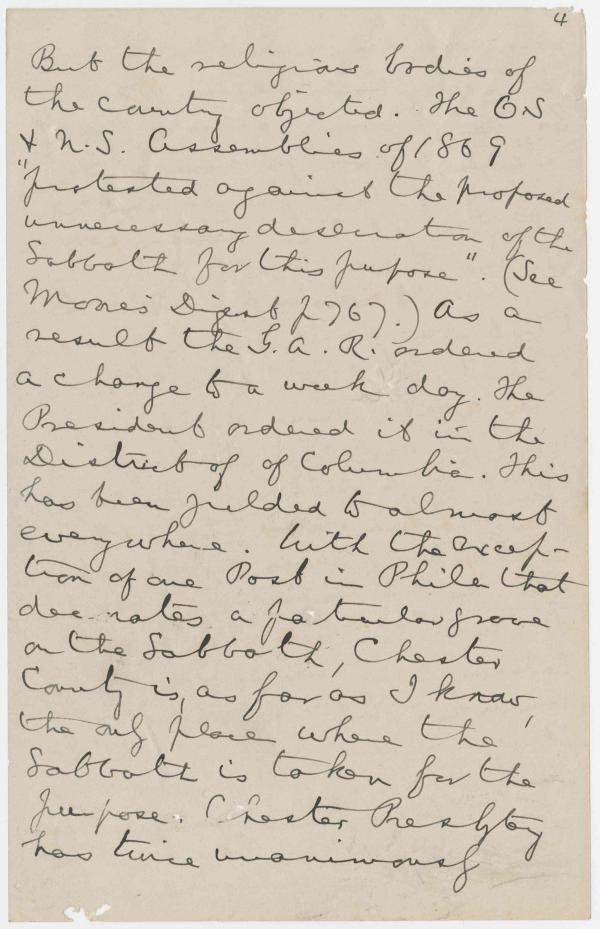 4
But the religious bodies of
the country objected. The O.S
& N.S. Assemblies of 1869
"protested against the proposed
unnecessary desecration of the
Sabbath for this purpose". (See
Moore's Digest p 767.) As a
result the G.A.R. ordered
a change to a week day. The
President ordered it in the
District of of Columbia. This
has been yielded to almost
everywhere. With the excep-
tion of one Post in Phila that
decorates a particular grove
on the Sabbath, Chester
County is, as far as I know,
the only place where the
Sabbath is taken for the
purpose. Chester Presbytery
has twice unanimously